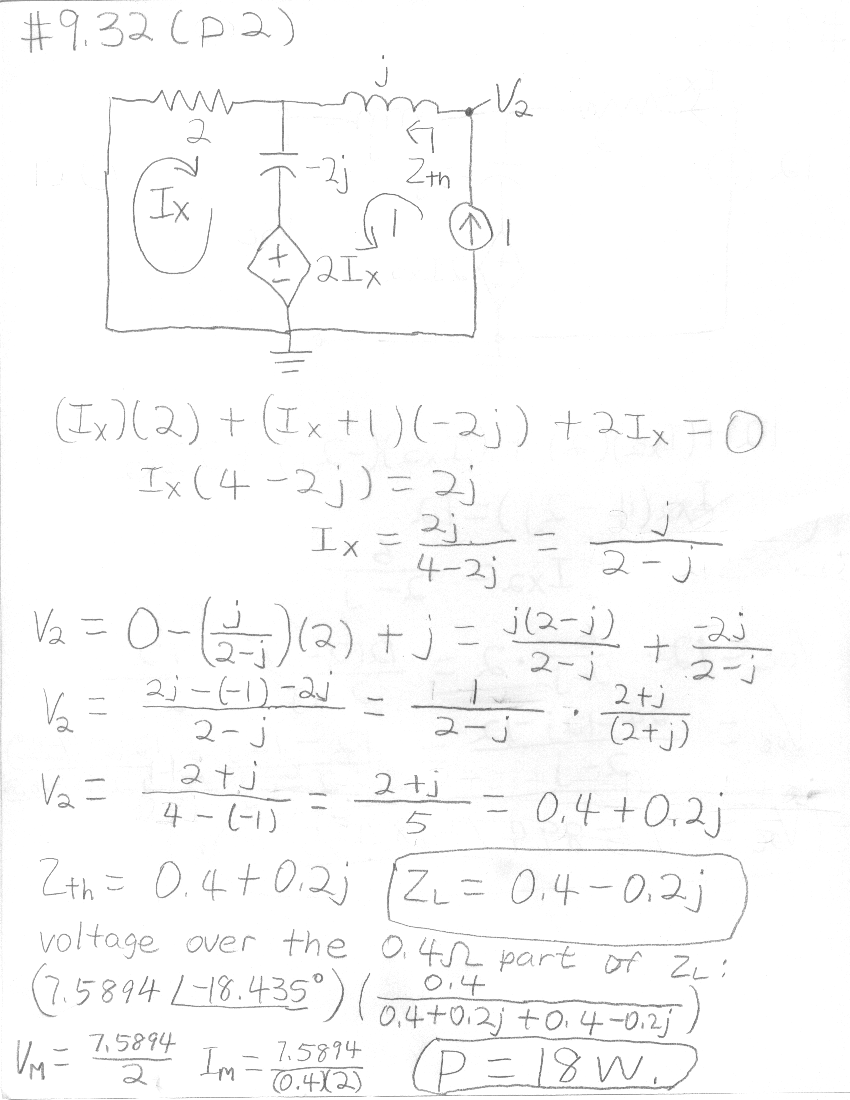 #9.32 (p 2)
j
V₂
2
-2j
Zth
Ix
1
1
2Ix
(Ix)(2) + (Ix+1)(-2j) + 2Ix = 0
Ix(4-2j) = 2j
Ix = 2j/(4-2j) = j/(2-j)
V₂ = 0-(j/(2-j))(2) + j = j(2-j)/(2-j) + -2j/(2-j)
V₂ = (2j-(-1)-2j)/(2-j) = 1/(2-j) · (2+j)/(2+j)
V₂ = (2+j)/(4-(-1)) = (2+j)/5 = 0.4+0.2j
Zth = 0.4+0.2j ZL = 0.4-0.2j
voltage over the 0.4Ω part of ZL:
(7.5894∠-18.435°)(0.4/(0.4+0.2j+0.4-0.2j))
VM = 7.5894/2 IM = 7.5894/((0.4)(2)) P = 18 W.